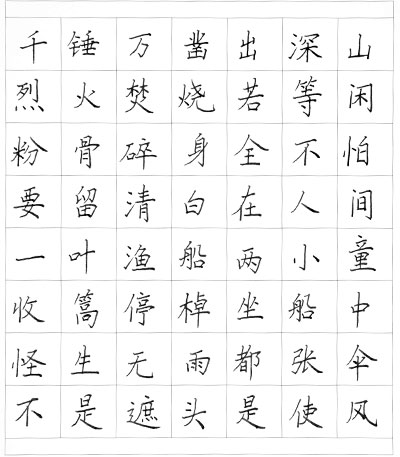 千锤万凿出深山
烈火焚烧若等闲
粉骨碎身全不怕
要留清白在人间
一叶渔船两小童
收篙停棹坐船中
怪生无雨都张伞
不是遮头是使风